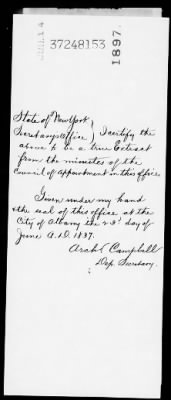 37248153
1897.
State of New York
Secretary's Office } I certify the
above to be a true Extract
from the minutes of the
Council of Appointment in this office.
Given under my hand
& the seal of this office at the
City of Albany the 23d day of
June A.D. 1837.
Arch Campbell
Dep. Secretary.